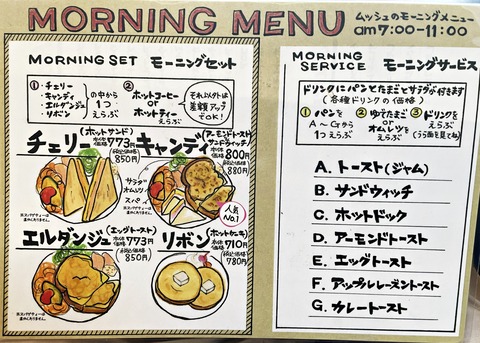 MORNING MENU
ムッシュのモーニングメニュー
am7:00-11:00
MORNING SET モーニングセット
① ・チェリー
・キャンディ
・エルダンジュ
・リボン
の中から
1つ
えらぶ
② ホットコーヒー
or
ホットティー
えらぶ
それ以外は
差額アップ
でOK!
チェリー
(ホットサンド)
本体価格 773円
(税込価格)
850円
キャンディ
(アーモンドトースト
サンドウィッチ)
本体価格 800円
(税込価格)
880円
サラダ
オムレツ
スパ
人気
No.1
エルダンジュ
(エッグトースト)
本体価格 773円
(税込価格)
850円
リボン
(ホットケーキ)
本体価格 710円
(税込価格)
780円
MORNING
SERVICE モーニングサービス
ドリンクにパンとたまごとサラダが付きます
(各種ドリンクの価格)
① パンを
A〜Gから
1つ
えらぶ
② ゆでたまご
or
オムレツを
えらぶ
③ ドリンクを
えらぶ
(うら面を見てね)
A. トースト(ジャム)
B. サンドウィッチ
C. ホットドック
D. アーモンドトースト
E. エッグトースト
F. アップルレーズントースト
G. カレートースト